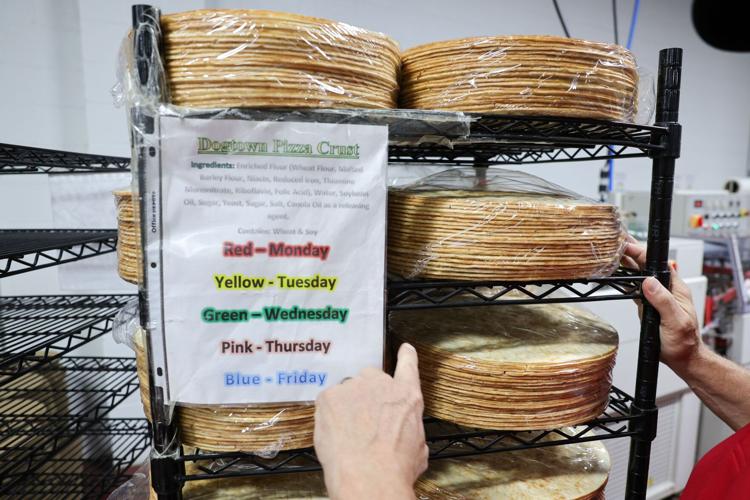 Dogtown Pizza Crust
Ingredients: Enriched Flour (Wheat Flour, Malted
Barley Flour, Niacin, Reduced Iron, Thiamine
Mononitrate, Riboflavin, Folic Acid), Water, Soybean
Oil, Sugar, Yeast, Sugar, Salt, Canola Oil as a releasing
agent.
Contains: Wheat & Soy
Red – Monday
Yellow - Tuesday
Green – Wednesday
Pink - Thursday
Blue - Friday
Office DEPOT